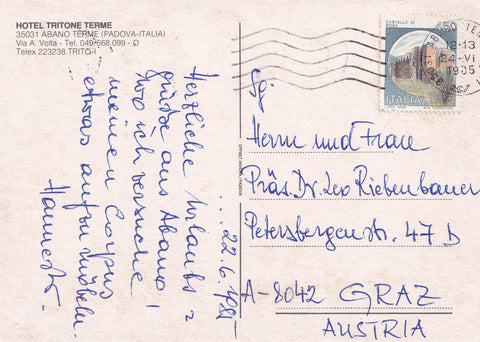 HOTEL TRITONE TERME
35031 ABANO TERME (PADOVA-ITALIA)
Via A. Volta - Tel. 049-668.099 - Ø
Telex 223238 TRITG-I
CASTELLO DI
450
ITALIA
12-13
24-VI
1985
... 22.6.1985
Herzliche Urlaubs =
grüße aus Abano!
wo ich versuche
meinen Corpus
etwas aufzumöbeln.
Hannes
Sg.
Herrn und Frau
Präs. Dr. Leo Riebenbauer
Petersbergenstr. 47 D
A-8042 GRAZ
AUSTRIA